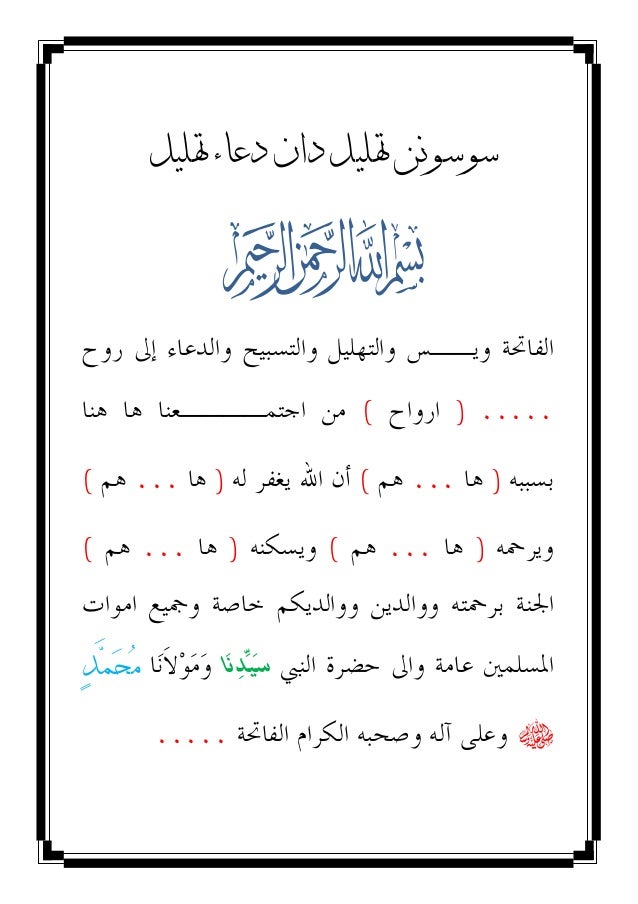 سوسونن تهليل دان دعاء تهليل
بِسْمِ اللَّهِ الرَّحْمَٰنِ الرَّحِيمِ
الفاتحة ويـــــس والتهليل والتسبيح والدعاء إلى روح
. . . . . ( ارواح ) من اجتمـــــــــعنا ها هنا
بسببه ( ها . . . هم ) أن الله يغفر له ( ها . . . هم )
ويرحمه ( ها . . . هم ) ويسكنه ( ها . . . هم )
الجنة برحمته ووالدين ووالديكم خاصة وجميع اموات
المسلمين عامة والى حضرة النبي سَيِّدِنَا وَمَوْلَانَا مُحَمَّدٍ
ﷺ وعلى آله وصحبه الكرام الفاتحة . . . . .